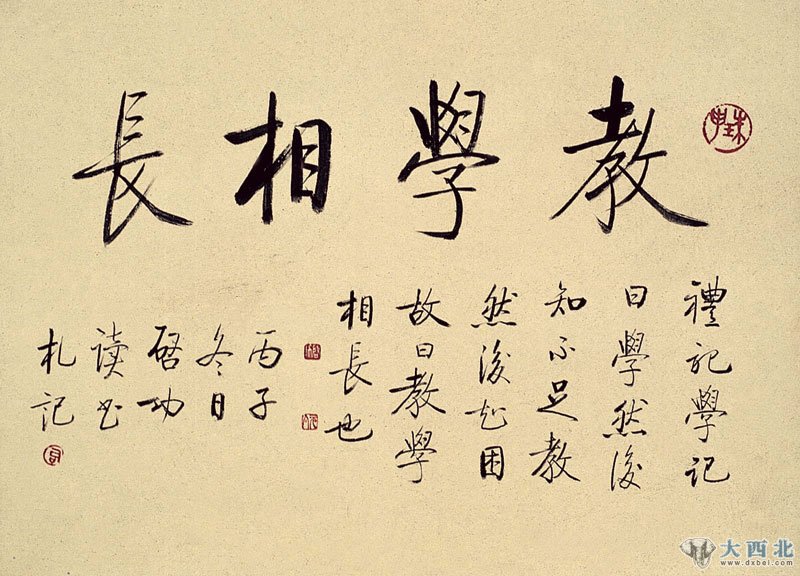 教學相長
珠申
禮記學記
曰學然後
知不足教
然後知困
故曰教學
相長也
丙子
冬日
啓功
读书
札记
大西北
www.dxbei.com